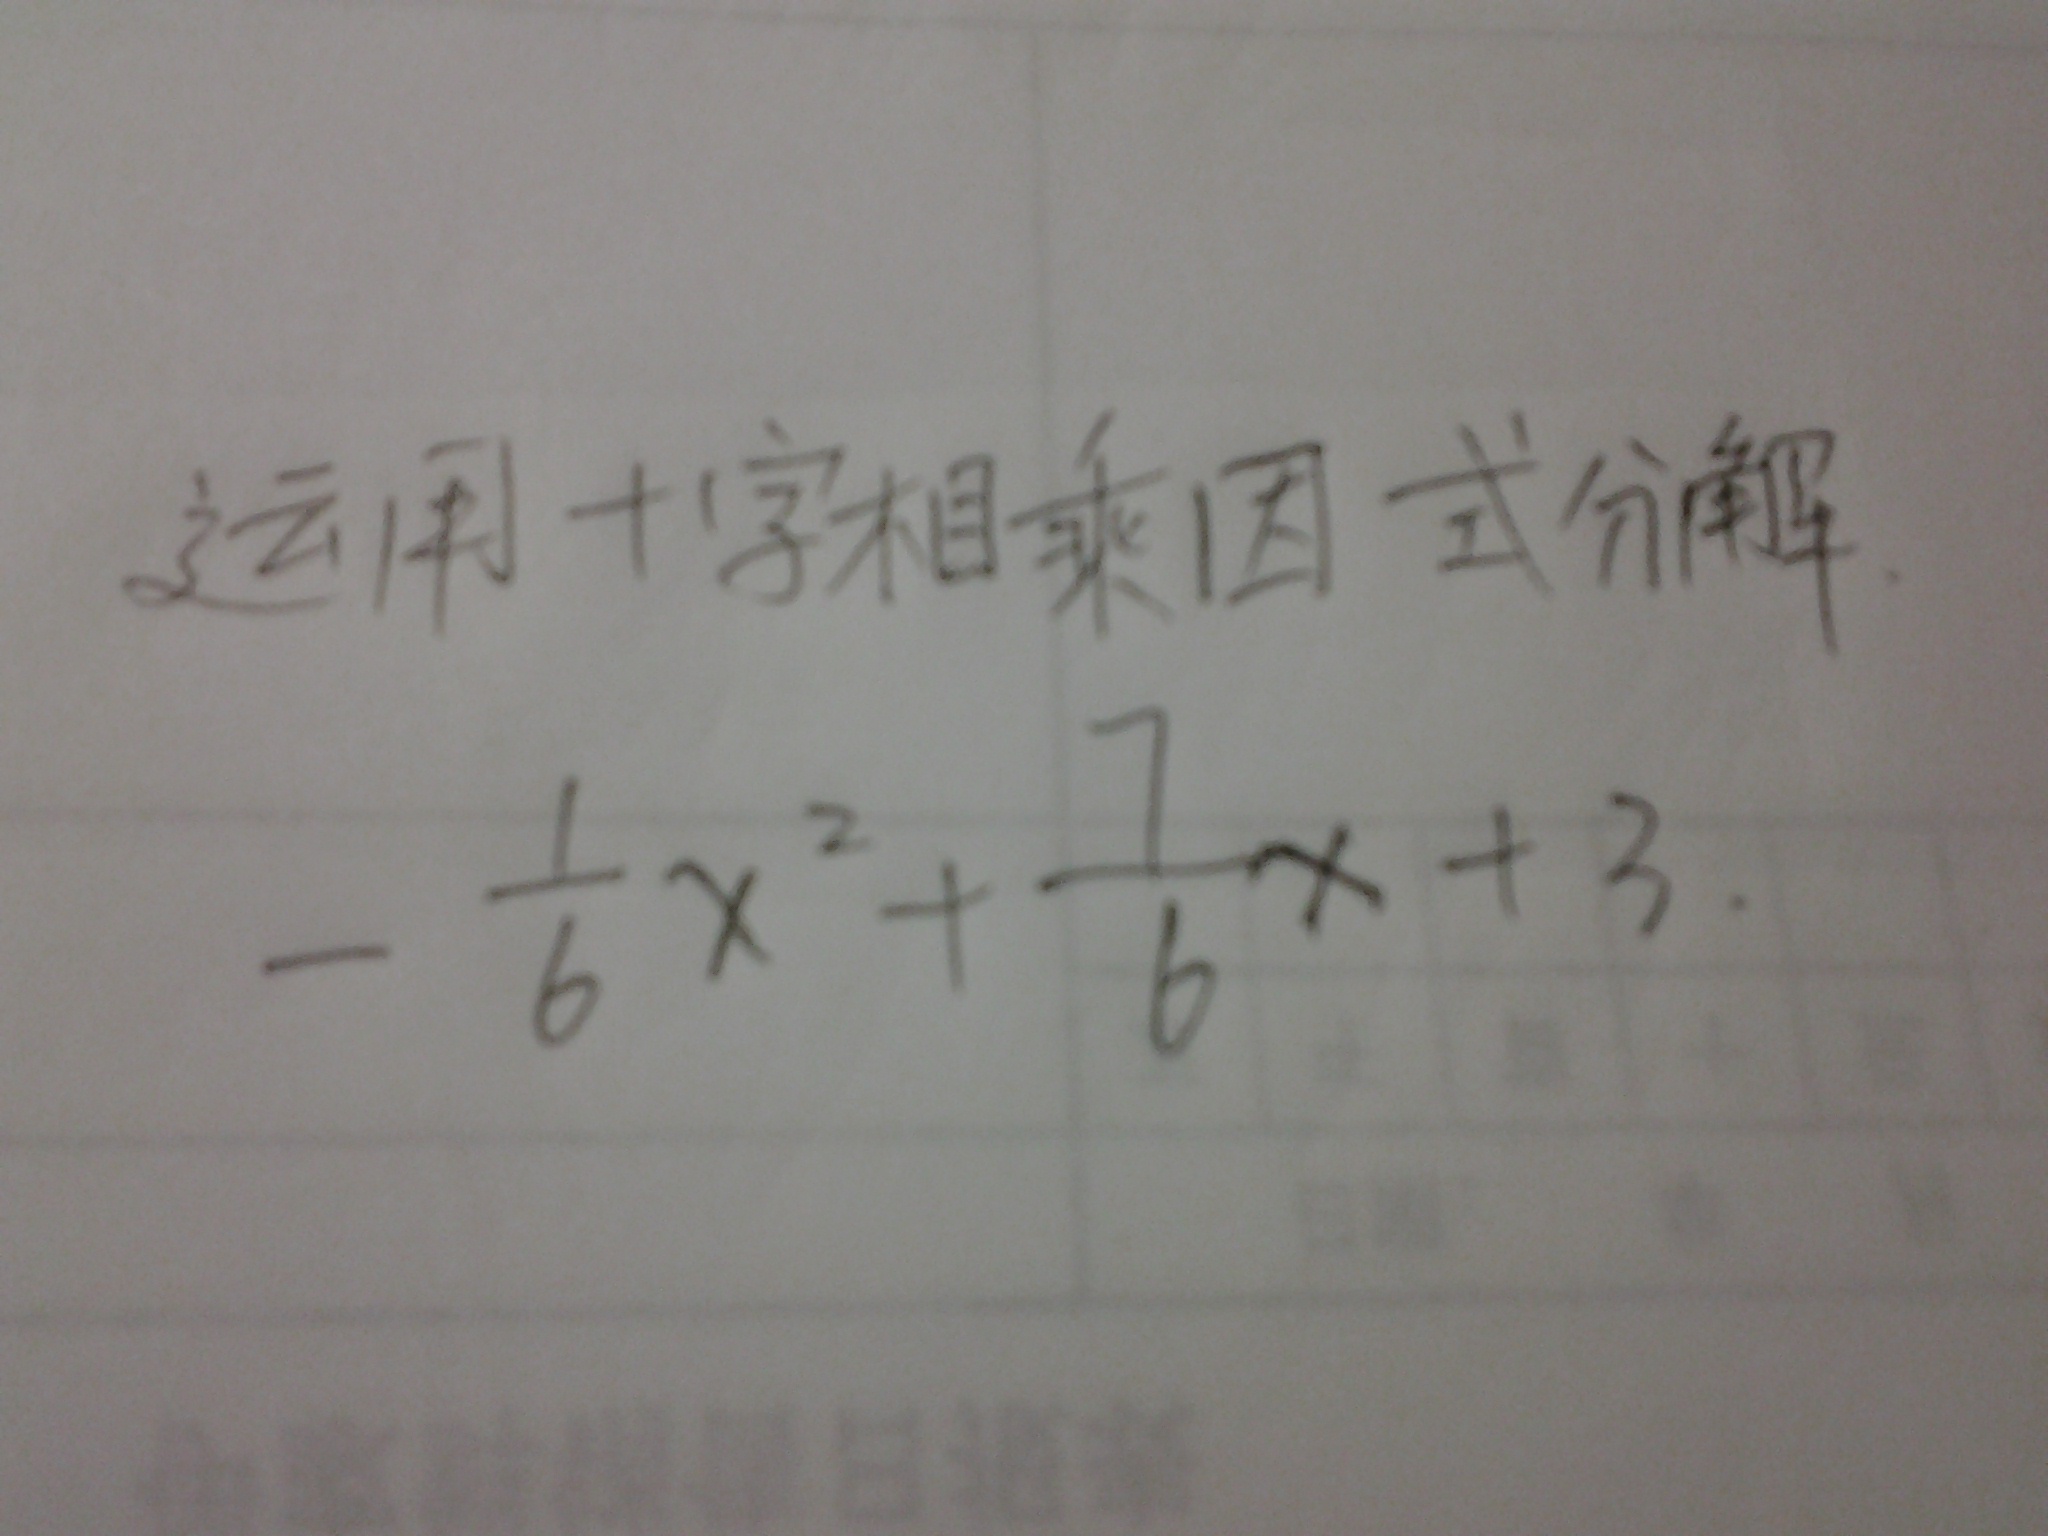 运用十字相乘因式分解.
- 1/6 x² + 7/6 x + 3.